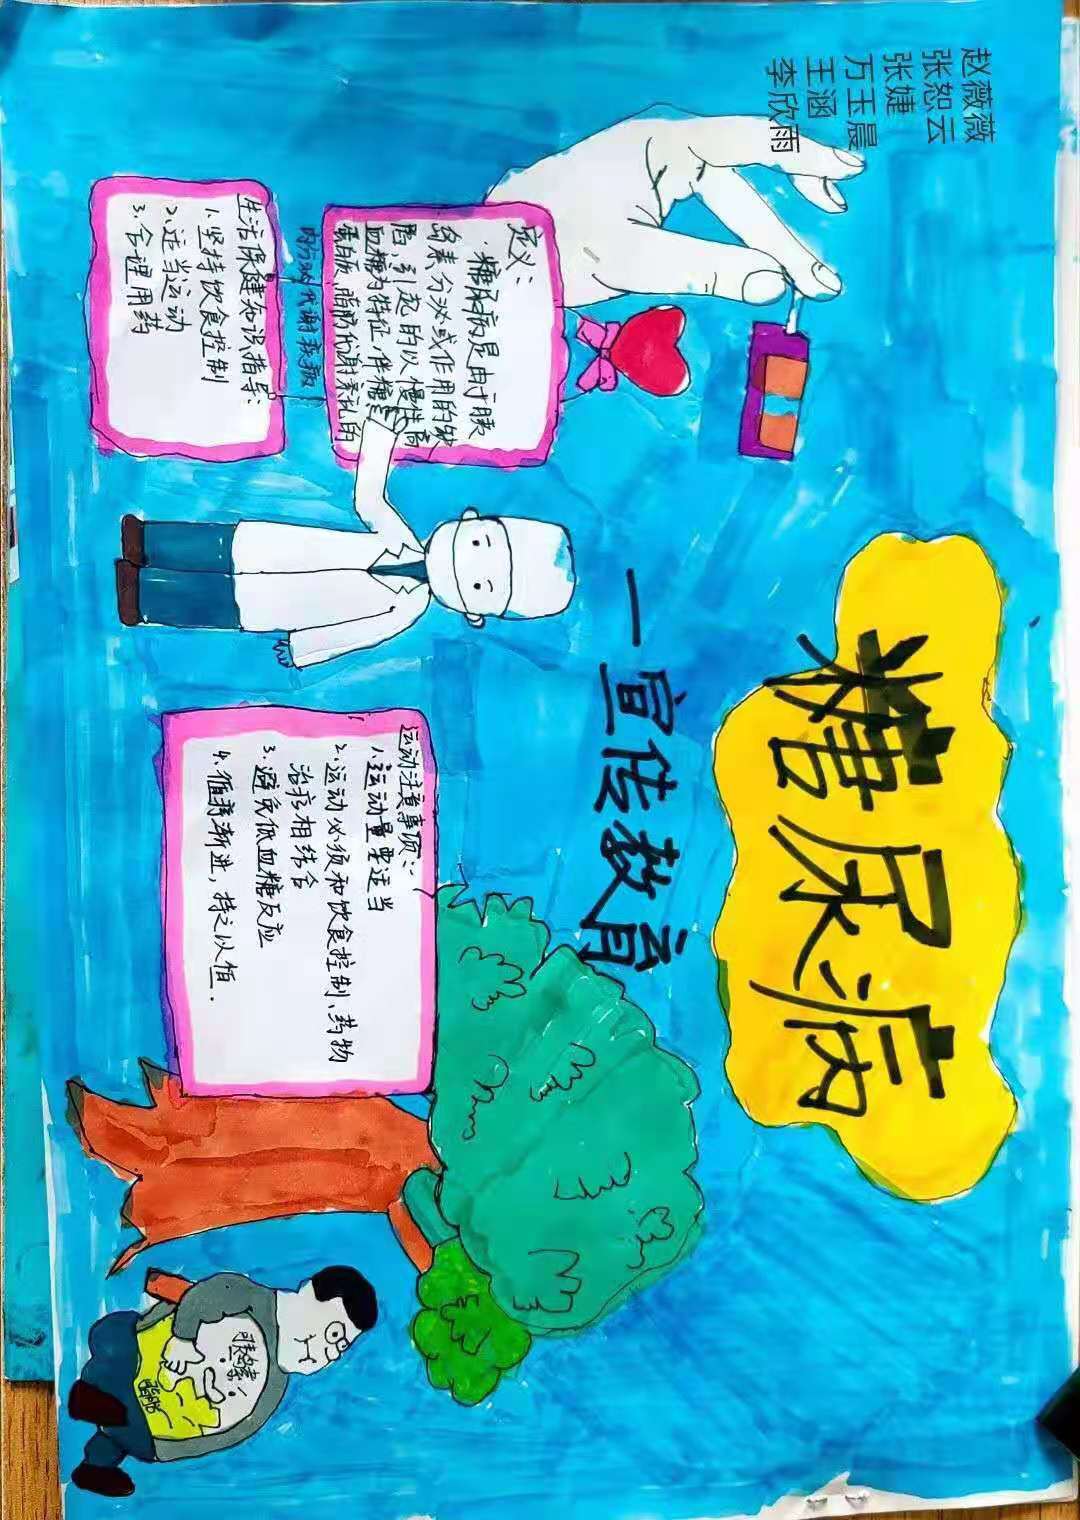 赵薇薇
张恕云
张婕
万玉晨
王涵
李欣雨
糖尿病
一宣传教育
定义：
糖尿病是由于胰
岛素分泌或作用的缺
陷，引起的以慢性高
血糖为特征，伴糖、
蛋白质、脂肪代谢紊乱的
内分泌代谢疾病
生活保健知识指导：
1.坚持饮食控制
2.适当运动
3.合理用药
运动注意事项：
1.运动量要适当
2.运动必须和饮食控制、药物
治疗相结合
3.避免低血糖反应
4.循序渐进，持之以恒.
胰岛素
脂肪